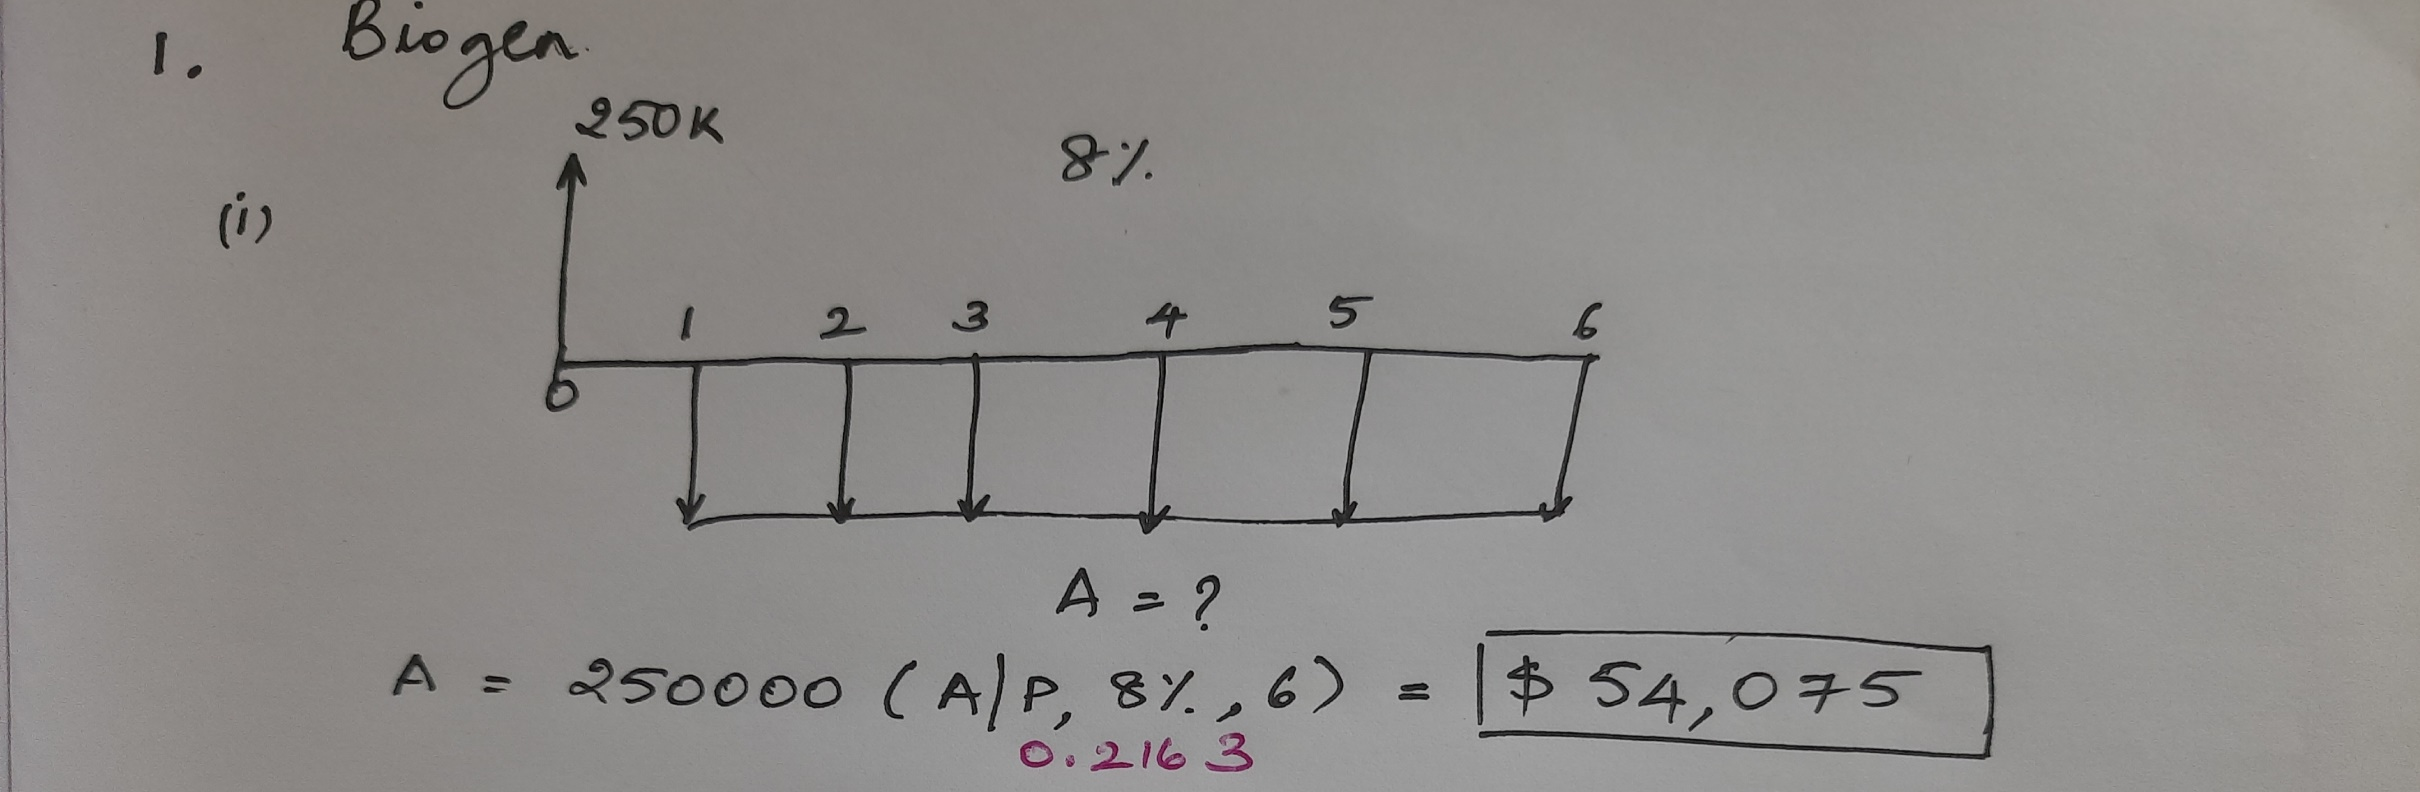 1. Biogen.
250K
8%
(i)
1 2 3 4 5 6
0
A = ?
A = 250000 (A/P, 8%, 6) = $ 54,075
0.2163